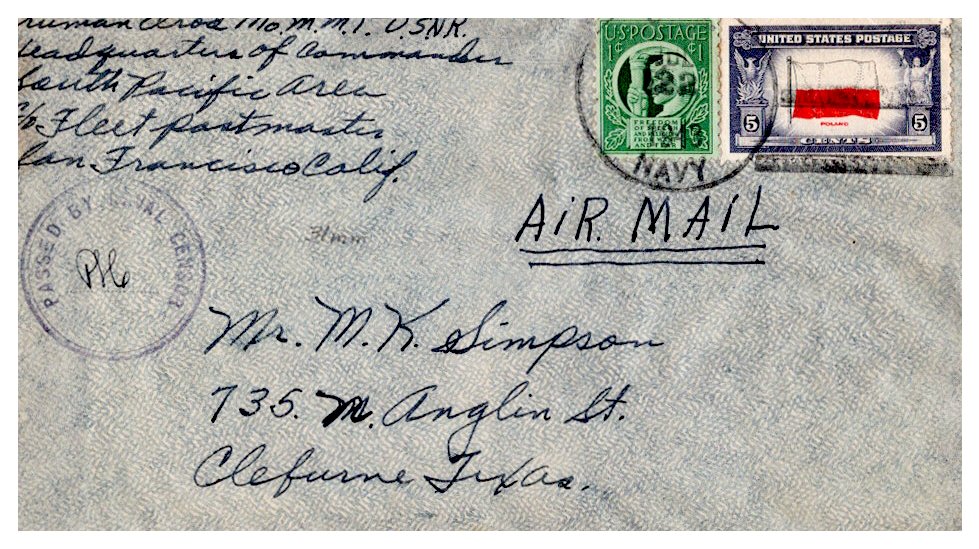 Mo.M.M.1. USNR.
Headquarters of Commander
South Pacific Area
c/o Fleet Postmaster
San Francisico Calif.
US POSTAGE
1¢ 1¢
FREEDOM
OF SPEECH
AND RELIGION
FROM WANT
AND FEAR
22
NAVY
UNITED STATES POSTAGE
POLAND
5 5
CENTS
PASSED BY NAVAL CENSOR
31mm
AiR. MAIL
Mr. M. K. Simpson
735. N. Anglin St.
Cleburne Texas.